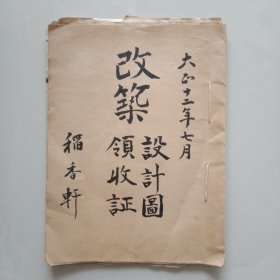 大正十二年七月
改築
設計圖
領收証
稲香軒